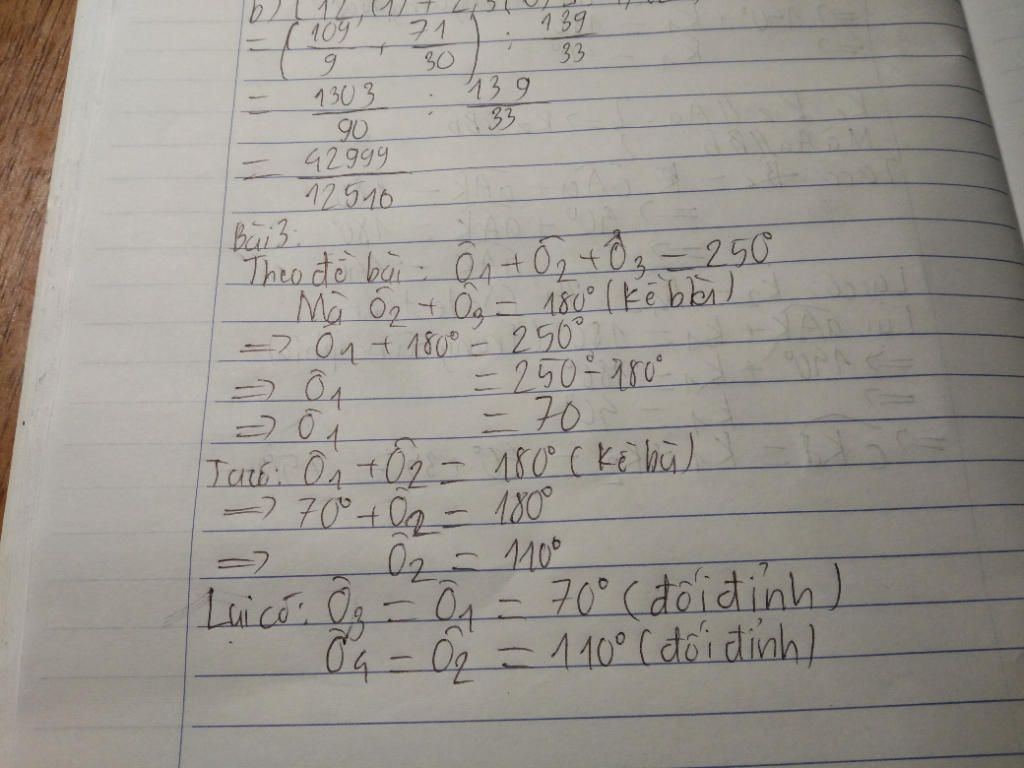 = (109/9 + 71/30) : 139/33
= 1303/90 : 139/33
= 42999/12510
Bài 3:
Theo đề bài: Ô1 + Ô2 + Ô3 = 250°
Mà Ô2 + Ô3 = 180° (kề bù)
=> Ô1 + 180° = 250°
=> Ô1 = 250° - 180°
=> Ô1 = 70
Ta có: Ô1 + Ô2 = 180° (kề bù)
=> 70° + Ô2 = 180°
=> Ô2 = 110°
Lại có: Ô3 = Ô1 = 70° (đối đỉnh)
Ô4 = Ô2 = 110° (đối đỉnh)